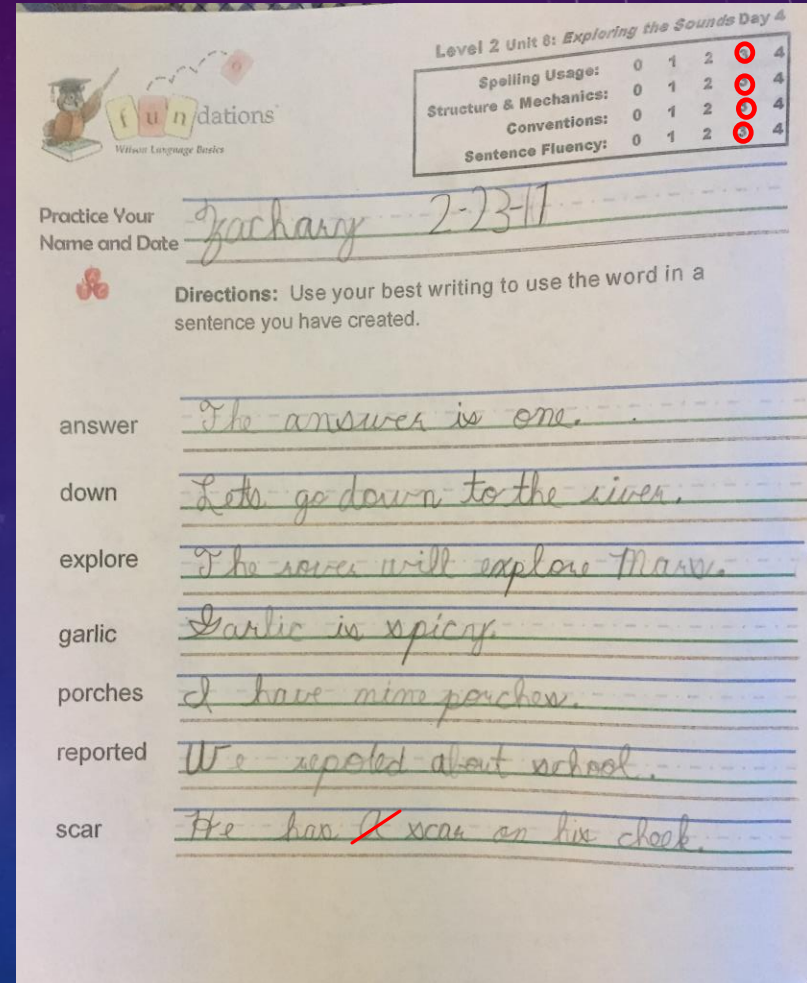 Level 2 Unit 8: Exploring the Sounds Day 4
Spelling Usage: 0 1 2 3 4
Structure & Mechanics: 0 1 2 3 4
Conventions: 0 1 2 3 4
Sentence Fluency: 0 1 2 3 4
fundations
Wilson Language Basics
Practice Your Name and Date Zachary 2-23-17
Directions: Use your best writing to use the word in a
sentence you have created.
answer The answer is one.
down Lets go down to the river.
explore The rover will explore Mars.
garlic Garlic is spicy.
porches I have nine porches.
reported We repoted about school.
scar He has A scar on his cheek.